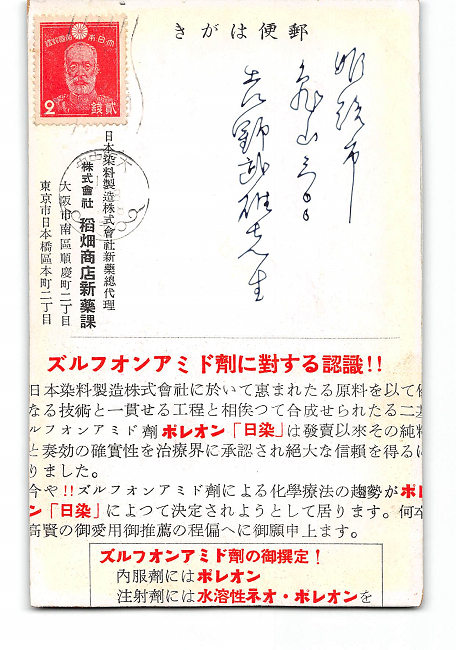 きがは便郵
大日本帝國郵便
2 錢貳
姫路市
亀山三〇〇
吉野雄先生
日本染料製造株式會社新藥總代理
株式會社 稻畑商店新藥課
大阪市南區順慶町二丁目
東京市日本橋區本町二丁目
ズルフオンアミド劑に對する認識!!
日本染料製造株式會社に於いて惠まれたる原料を以て
なる技術と一貫せる工程と相俟つて合成せられたる二
ルフオンアミド劑ポレオン「日染」は發賣以來その純
と奏効の確實性を治療界に承認され絕大な信賴を得る
りました。
今や!!ズルフオンアミド劑による化學療法の趨勢がポレ
ン「日染」によつて決定されようとして居ります。何卒
高賢の御愛用御推薦の程偏へに御願申上ます。
ズルフオンアミド劑の御撰定!
內服劑にはポレオン
注射劑には水溶性ネオ・ポレオンを